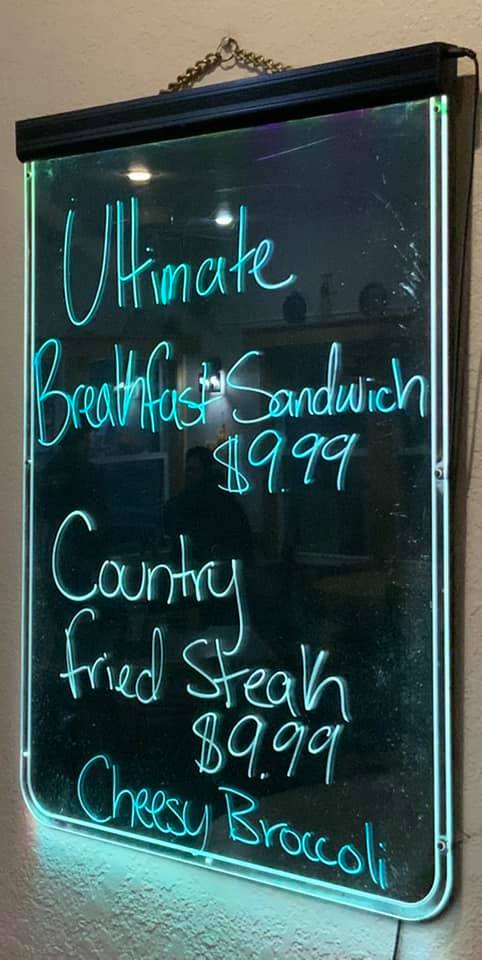 Ultimate
Breakfast Sandwich
$9.99
Country
Fried Steak
$9.99
Cheesy Broccoli